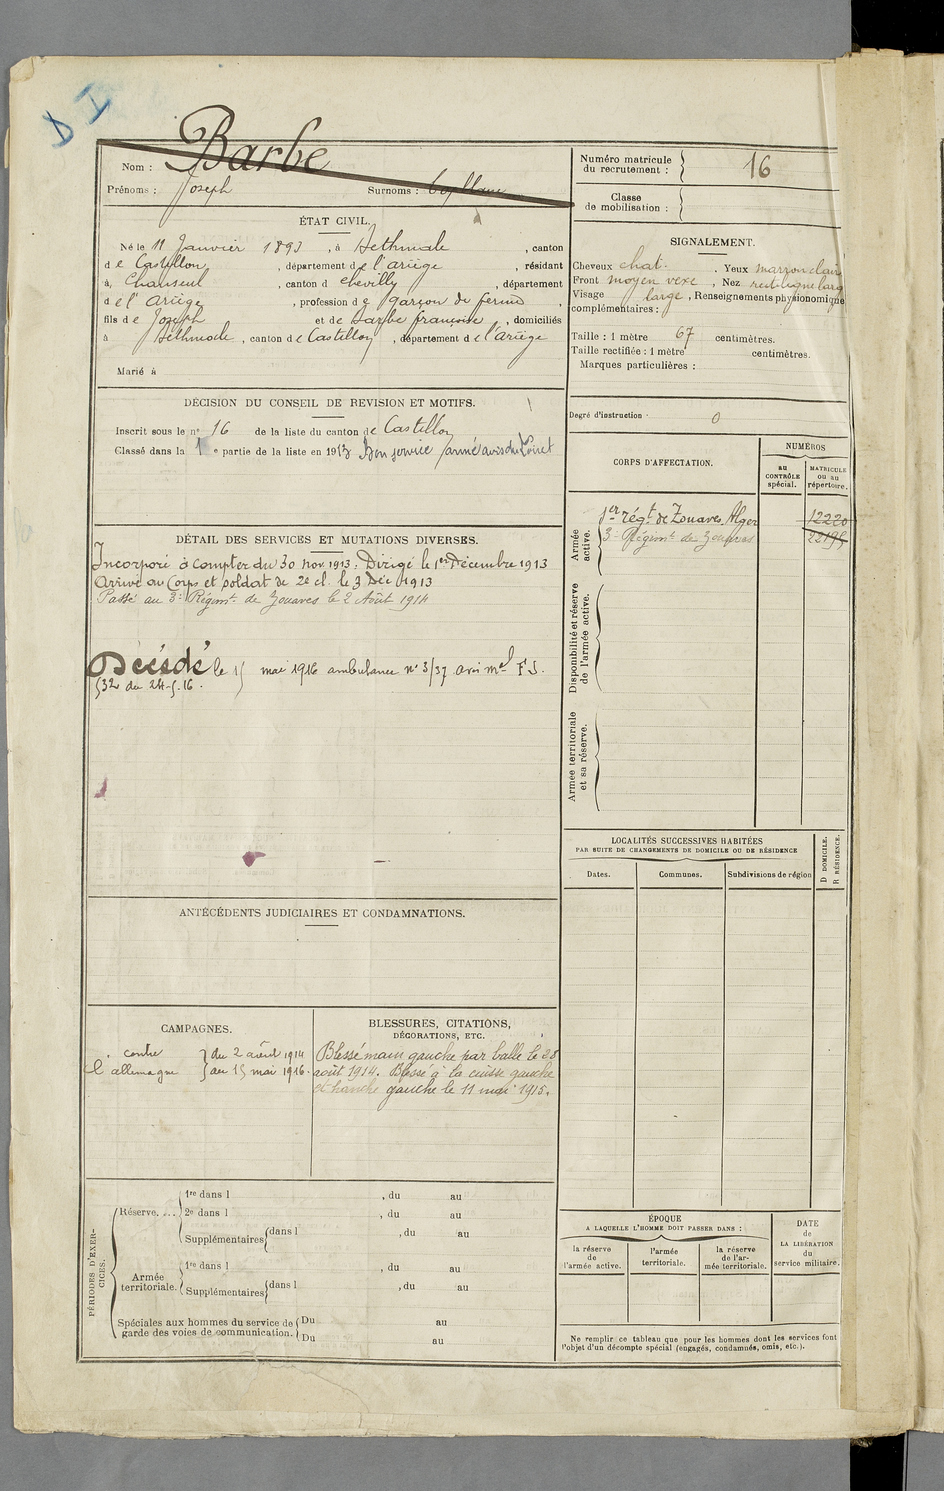 D I
Nom : Barbe
Prénoms : Joseph Surnoms :
ÉTAT CIVIL.
Né le 11 Janvier 1893, à Sethmale, canton
de Castillon, département de l'ariège, résidant
à, Chanseul, canton d chevilly, département
de l'Ariège, profession de garçon de ferme,
fils de Joseph et de Barbe françoise, domiciliés
à Sethmale, canton de Castillon, département de l'ariège
Marié à
DÉCISION DU CONSEIL DE REVISION ET MOTIFS.
Inscrit sous le n° 16 de la liste du canton de Castillon
Classé dans la 1e partie de la liste en 1913 Bon service armé avis du Loiret
DÉTAIL DES SERVICES ET MUTATIONS DIVERSES.
Incorporé à compter du 30 nov. 1913. Dirigé le 1er Décembre 1913
Arrivé au Corps et soldat de 2e cl. le 3 Déc 1913
Passé au 3e Régimt. de Zouaves le 2 Août 1914
Décédé le 15 mai 1916 ambulance n° 3/37 avis mel F.S.
532 du 24-5-16.
ANTÉCÉDENTS JUDICIAIRES ET CONDAMNATIONS.
CAMPAGNES.
contre } du 2 août 1914
l'allemagne } au 15 mai 1916.
BLESSURES, CITATIONS,
DÉCORATIONS, ETC.
Blessé main gauche par balle le 28
août 1914. Blessé à la cuisse gauche
et hanche gauche le 11 mai 1915.
PÉRIODES D'EXERCICES.
Réserve. ... 1re dans l , du au
2e dans l , du au
Supplémentaires dans l , du au
Armée territoriale. 1re dans l , du au
Supplémentaires dans l , du au
Spéciales aux hommes du service de Du au
garde des voies de communication. Du au
Numéro matricule
du recrutement : 16
Classe
de mobilisation :
SIGNALEMENT.
Cheveux chat. . Yeux marron clair
Front moyen vexe, Nez rectiligne larg
Visage large, Renseignements physionomique
complémentaires :
Taille : 1 mètre 67 centimètres.
Taille rectifiée : 1 mètre centimètres.
Marques particulières :
Degré d'instruction · 0
CORPS D'AFFECTATION.
NUMÉROS
au
CONTRÔLE
spécial.
MATRICULE
ou au
répertoire.
Armée
active.
1er régt. de Zouaves, Alger 12220
3e Régimt. de Zouaves 22195
Disponibilité et réserve
de l'armée active.
Armée territoriale
et sa réserve.
LOCALITÉS SUCCESSIVES HABITÉES
PAR SUITE DE CHANGEMENTS DE DOMICILE OU DE RÉSIDENCE
D DOMICILE.
R RÉSIDENCE.
Dates. Communes. Subdivisions de région
ÉPOQUE
A LAQUELLE L'HOMME DOIT PASSER DANS :
la réserve
de
l'armée active.
l'armée
territoriale.
la réserve
de l'ar-
mée territoriale.
DATE
de
LA LIBÉRATION
du
service militaire.
Ne remplir ce tableau que pour les hommes dont les services font
l'objet d'un décompte spécial (engagés, condamnés, omis, etc.).